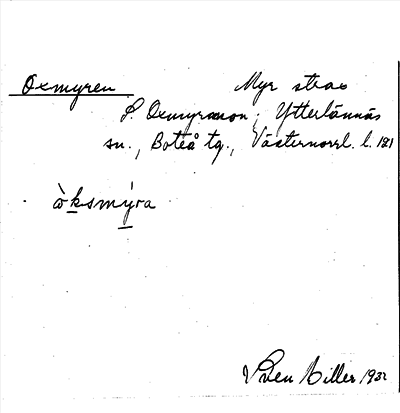 Oxmyren Myr strax
S. Oxmyrmon; Ytterlännäs
sn., Boteå tg., Västernorrl. l. 181
òksmýra
Sven Miller 1932